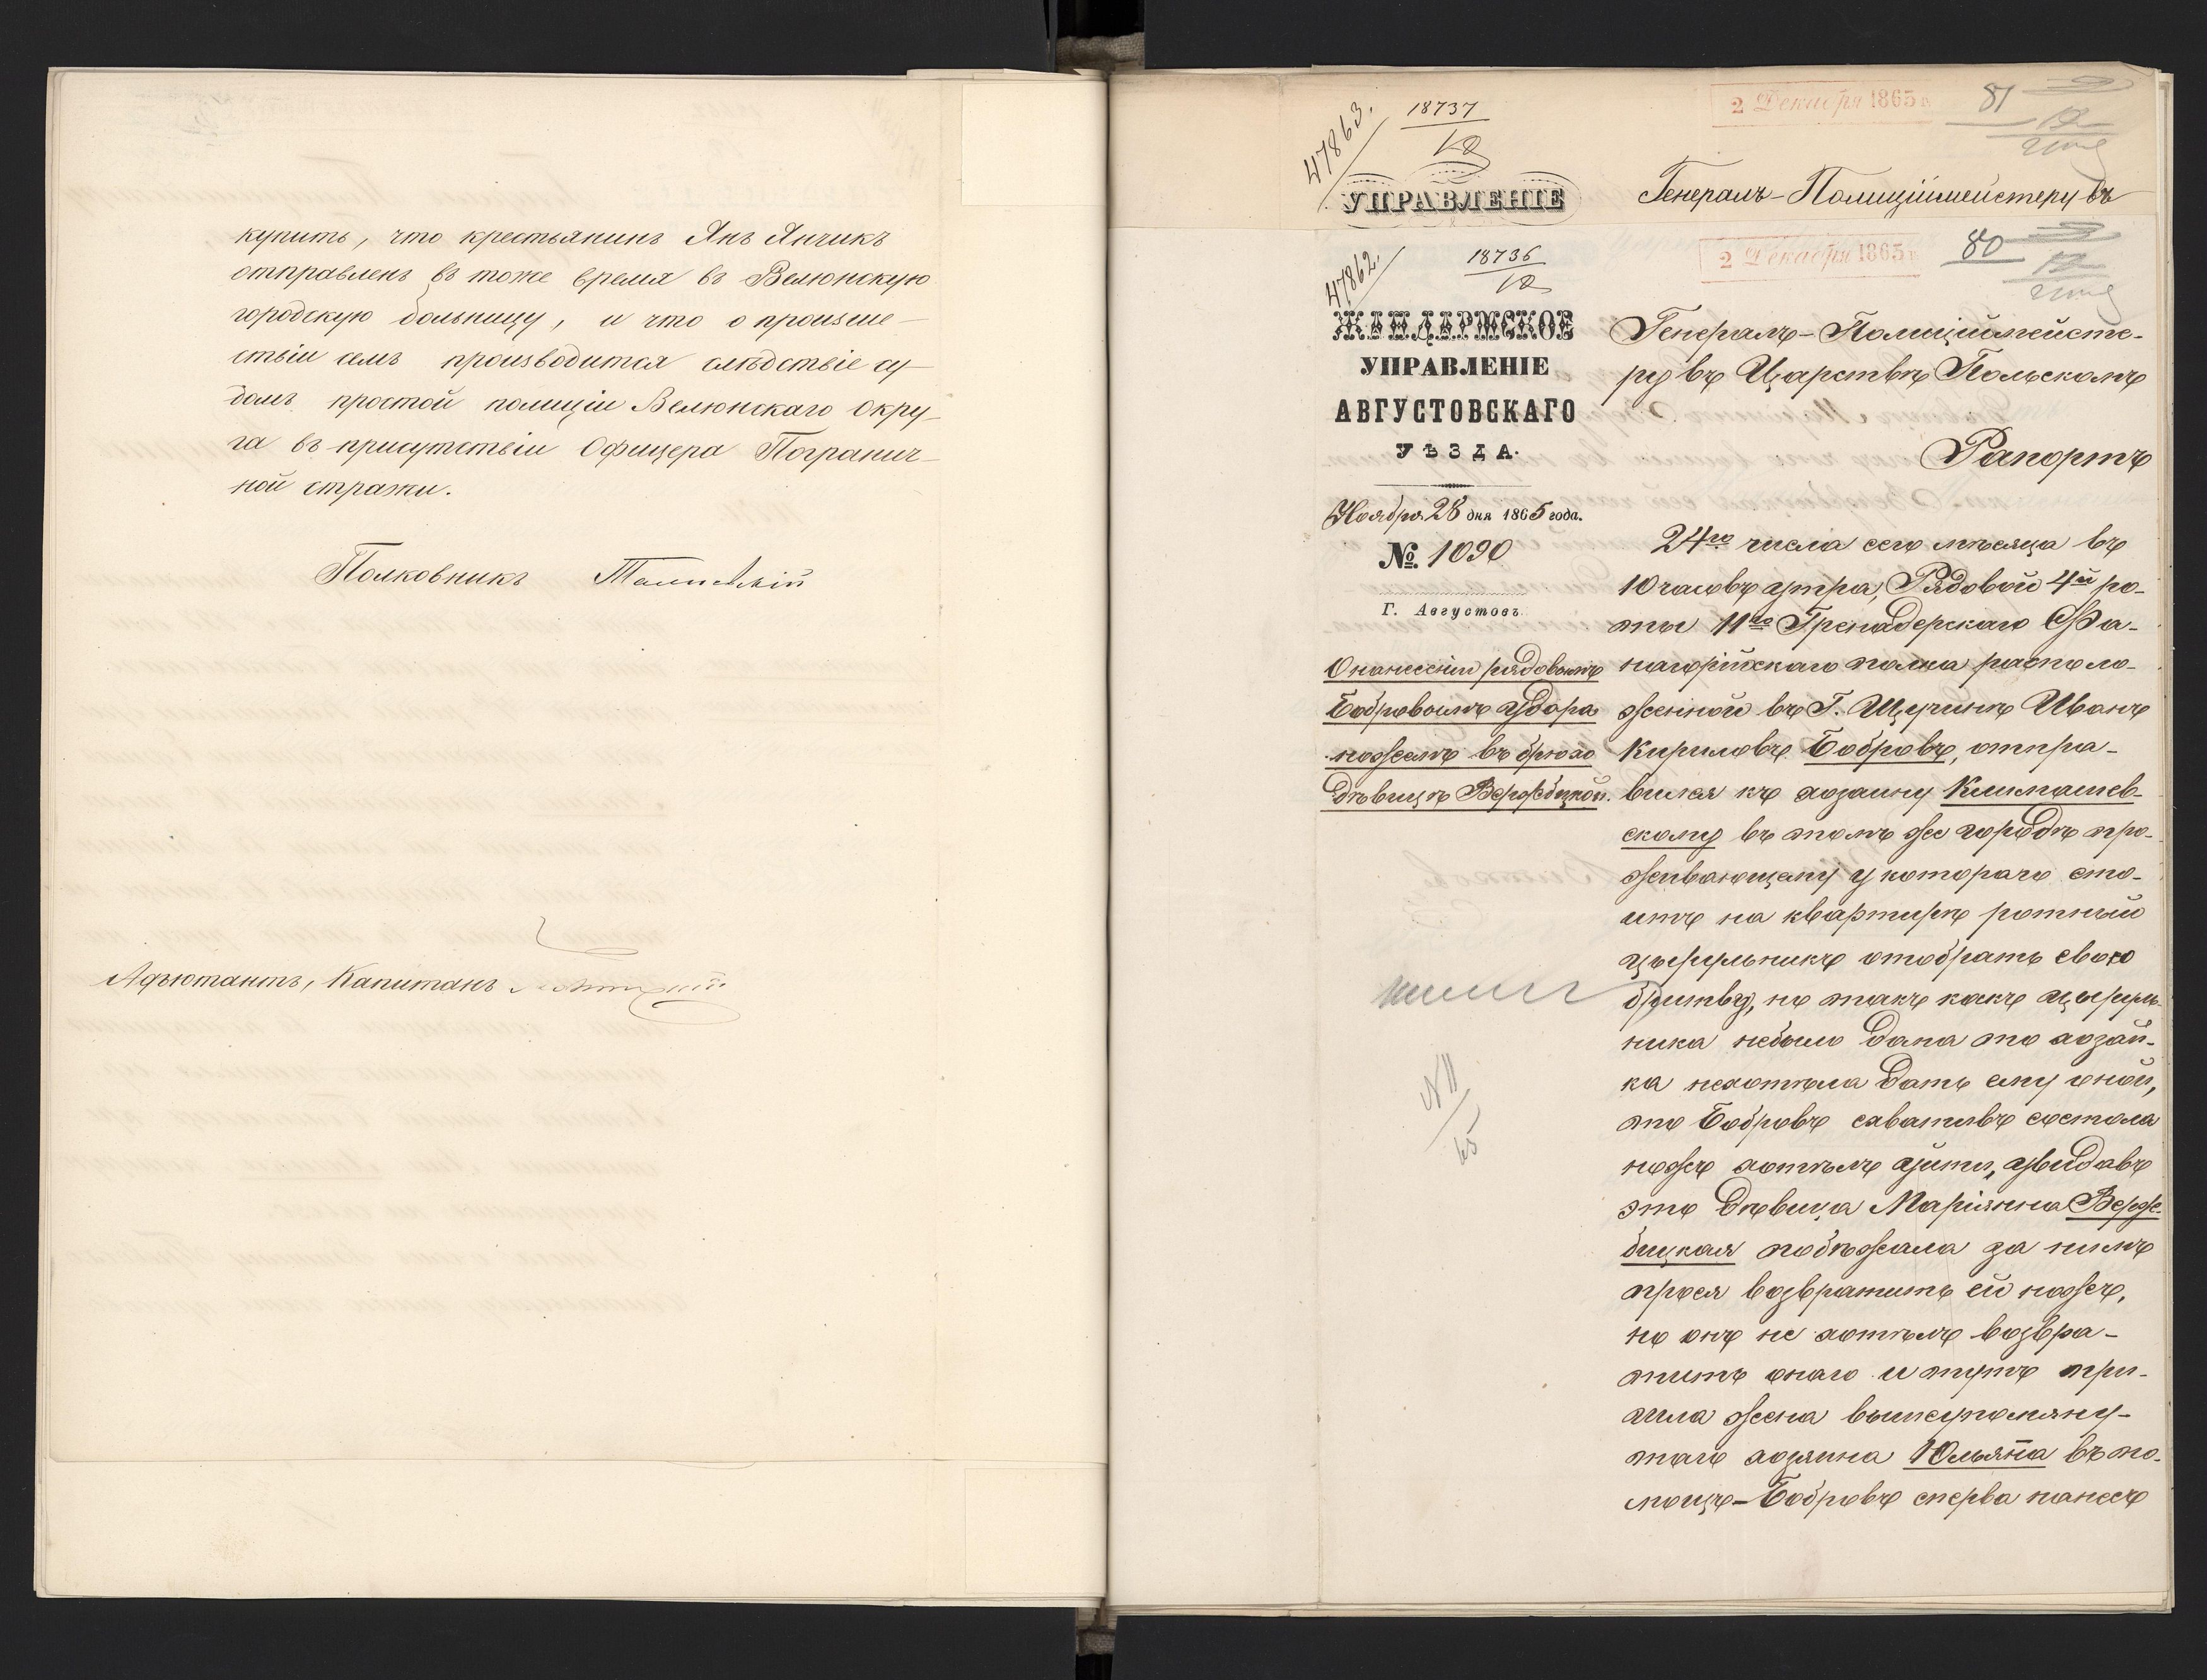 купить, что крестьянинъ Янъ Янчикъ
отправленъ въ тоже время въ Велюнскую
городскую больницу, и что о происше-
ствіи семъ производится слѣдствіе су-
домъ простой полиціи Велюнскаго Окру-
га въ присутствіи Офицера Погранич-
ной стражи.
Полковникъ
Адъютантъ, Капитанъ
47863.
18737
12
2 Декабря 1865 г.
81
УПРАВЛЕНІЕ
Генералъ-Полиціймейстеру въ
47862.
18736
12
2 Декабря 1865 г.
80
ЖАНДАРМСКОЕ
УПРАВЛЕНІЕ
АВГУСТОВСКАГО
УѢЗДА.
Ноября 28 дня 1865 года.
№ 1090
Г. Августовъ.
О нанесеніи рядовымъ
Бобровымъ удара
ножемъ въ брюхо
дѣвицѣ Вержбицкой.
Генералъ-Полиціймейсте-
ру въ Царствѣ Польскомъ
Рапортъ
24го числа сего мѣсяца въ
10 часовъ утра, Рядовой 4й ро-
ты 11го Гренадерскаго Фа-
нагорійскаго полка располо-
женной въ Г. Щучинѣ Иванъ
Кириловъ Бобровъ, отпра-
вился къ хозаину Климашев-
скому въ томъ же городѣ про-
живающему у котораго сто-
итъ на квартирѣ ротный
цырульникъ отобрать свою
бритву, но такъ какъ цыруль-
ника небыло дома то хозяй-
ка нехотѣла дать ему оной,
то Бобровъ схвативъ состола
ножъ хотѣлъ уйти, увидавъ
это дѣвица Маріянна Верж-
бицкая побѣжала за нимъ
прося возвратить ей ножъ,
но онъ не хотѣлъ возвра-
тить онаго и тутъ при-
шла жена вышеупомяну-
таго хозяина Юльянна въ по-
мощь-Бобровъ сперва нанесъ
№ 11
65